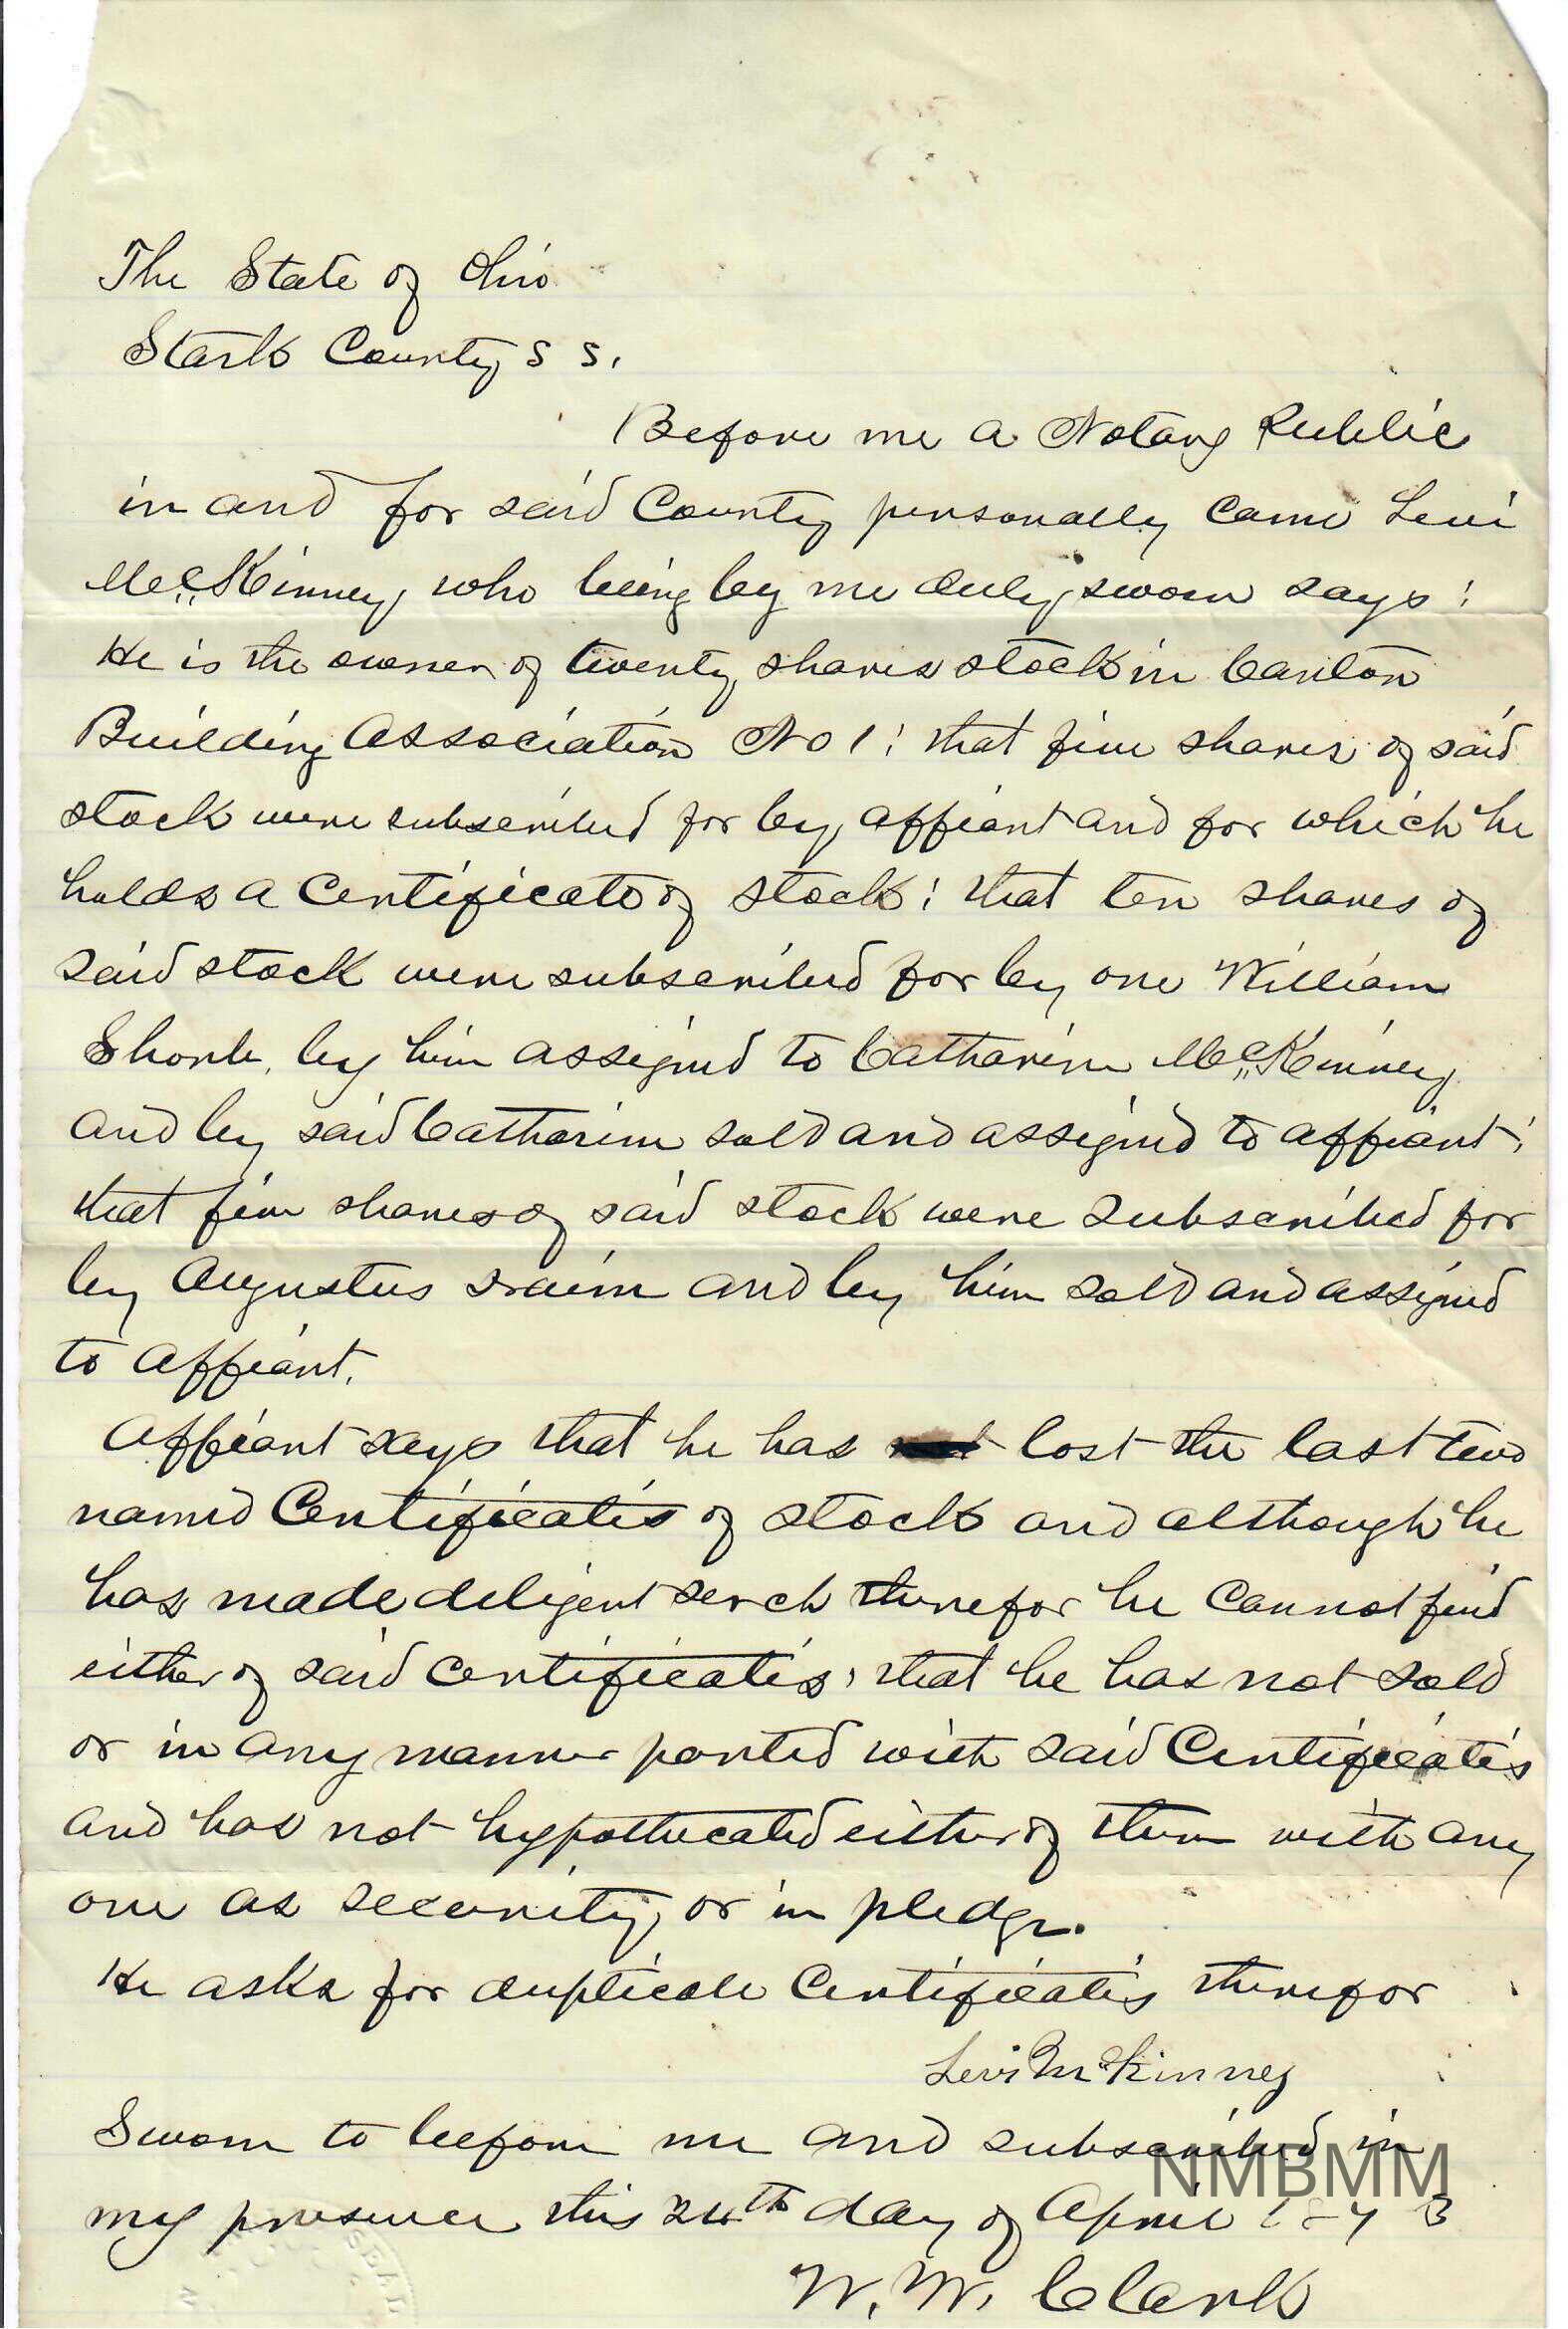 The State of Ohio
Stark County S S.
Before me a Notary Public
in and for said County personally came Levi
McKinney, who being by me duly sworn says:
He is the owner of twenty shares stock in Canton
Building Association No 1; that five shares of said
stock were subscribed for by affiant and for which he
holds a Certificate of stock; that ten shares of
said stock were subscribed for by one William
by him assigned to Catharine McKinney
and by said Catharine sold and assigned to affiant;
that five shares of said stock were subscribed for
by Augustus and by him sold and assigned
to affiant.
Affiant says that he has lost the last two
named Certificates of stock and although he
has made diligent serch therefor he cannot find
either of said certificates, that he has not sold
or in any manner parted with said Certificates
and has not hypothecated either of them with any
one as security, or in pledge.
He asks for duplicate Certificates therefor
Levi McKinney
Sworn to before me and subscribed in
my presence this 24th day of April 1873
W. W. Clark
NMBMM
SEAL